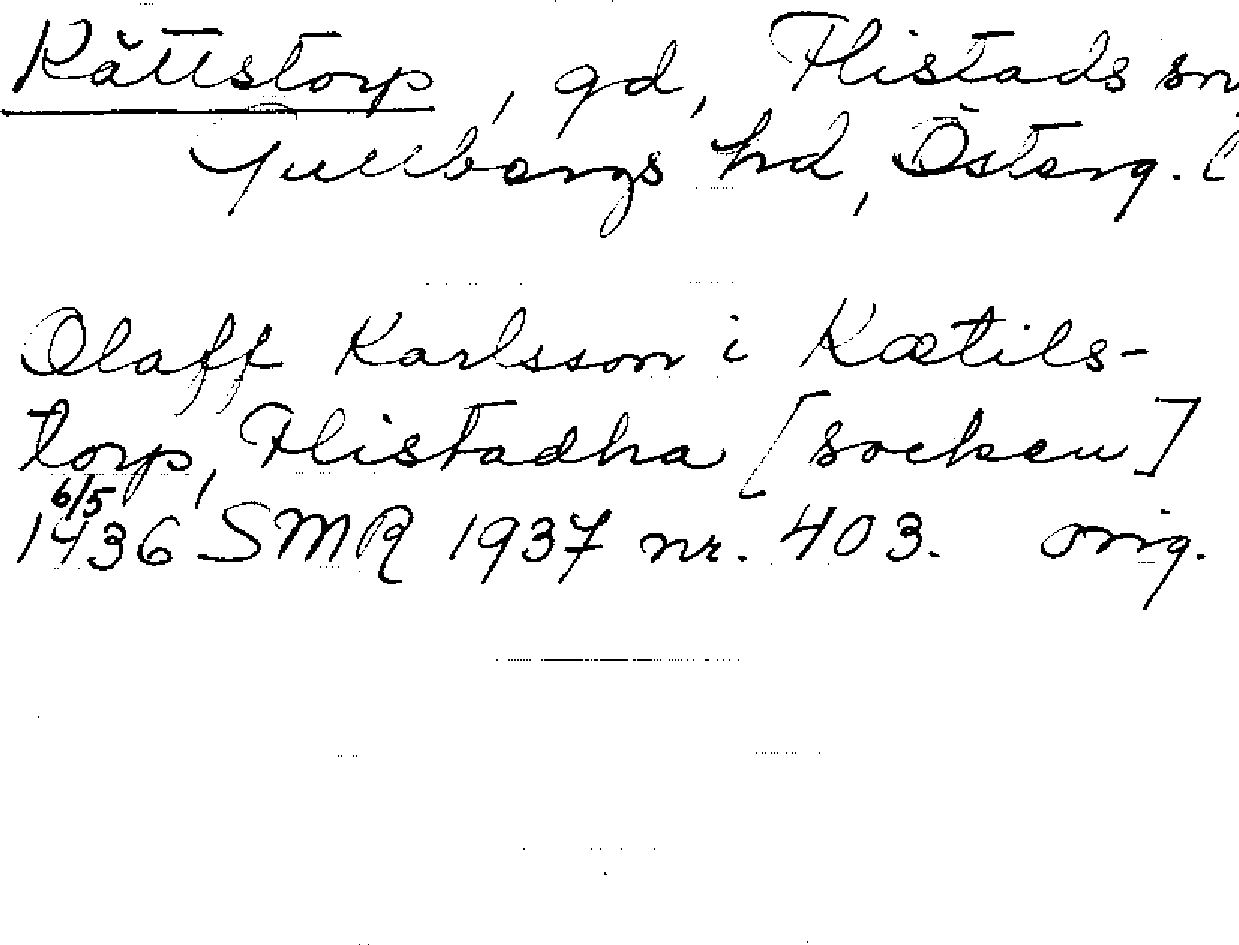 Kättstorp, gd, Flistads sn
Gullbergs hd, Österg. l
Olaff Karlsson i Kætils-
torp, Flistadha [socken]
6/5
1436 SMR 1937 nr. 403. orig.